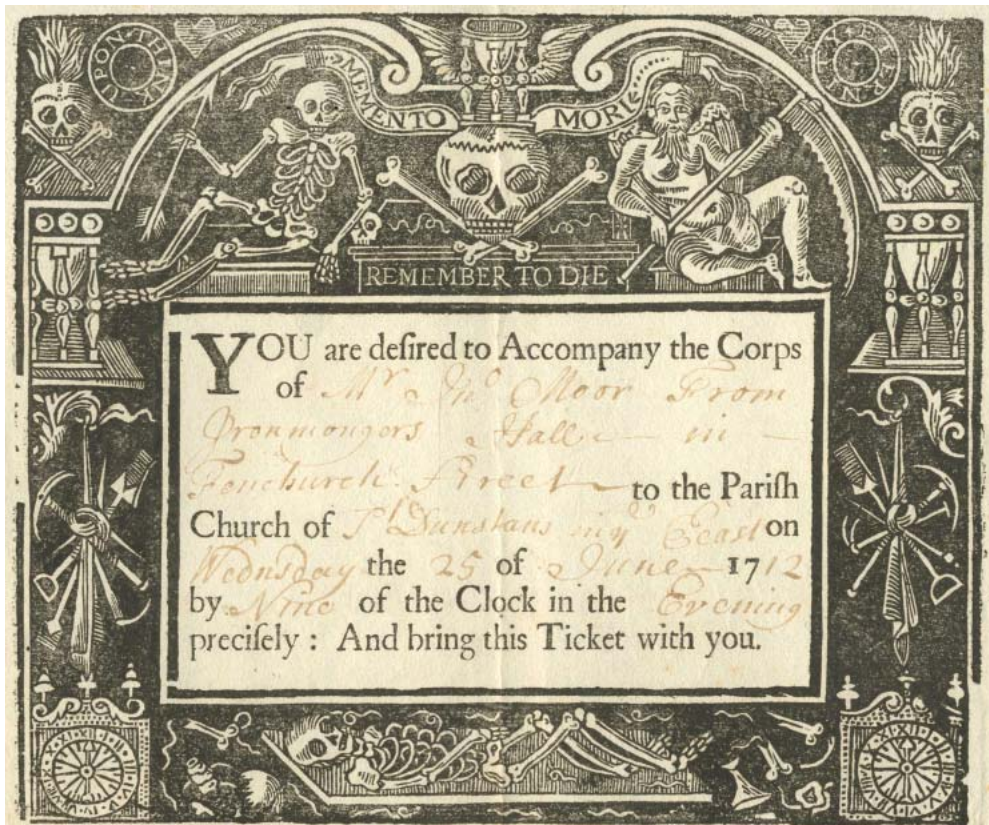 UPON·THINK
ETERNITY
MEMENTO MORI
REMEMBER TO DIE
YOU are deſired to Accompany the Corps
of Mr Jno Moor From
Ironmongers Hall in
Fenchurch Street to the Pariſh
Church of St Dunstans in ye East on
Wednsday the 25 of June 1712
by Nine of the Clock in the Evening
preciſely : And bring this Ticket with you.